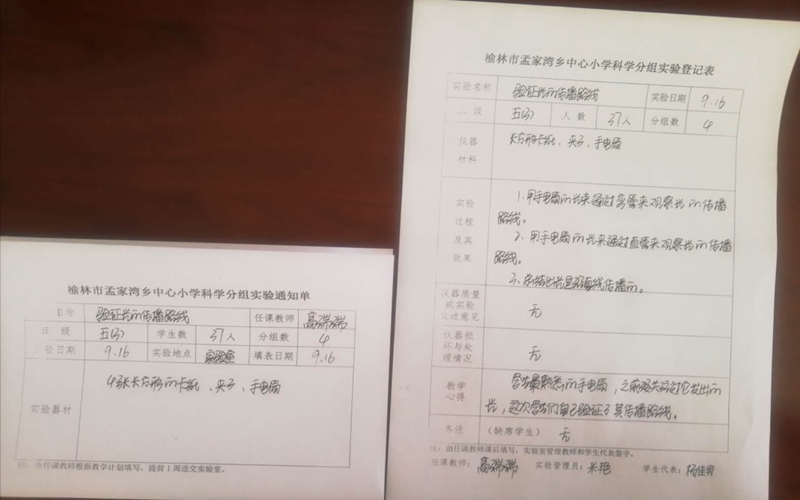 榆林市孟家湾乡中心小学科学分组实验通知单
名称 验证光的传播路线 任课教师 高瑞瑞
班级 五(3) 学生数 37人 分组数 4
实验日期 9.16 实验地点 实验室 填表日期 9.16
实验器材 4张长方形的卡纸、夹子、手电筒
注：由任课教师根据教学计划填写，提前1周送交实验室。
榆林市孟家湾乡中心小学科学分组实验登记表
实验名称 验证光的传播路线 实验日期 9.16
级 五(3) 人数 37人 分组数 4
仪器
材料
长方形卡纸、夹子、手电筒
实验
过程
及其
效果
1.用手电筒的光来通过弯管来观察光的传播
路线。
2.用手电筒的光来通过直管来观察光的传播
路线。
3.总结出光是沿直线传播的。
仪器质量
或实验
改进意见
无
仪器损
坏与处
理情况
无
教学
心得
学生最熟悉的手电筒，之前发出的
光，这次学生们自己验证了其传播路线。
备注 (缺席学生) 无
注：由任课教师课后填写，实验室管理教师和学生代表签字。
任课教师：高瑞瑞 实验管理员：米艳 学生代表：杨佳